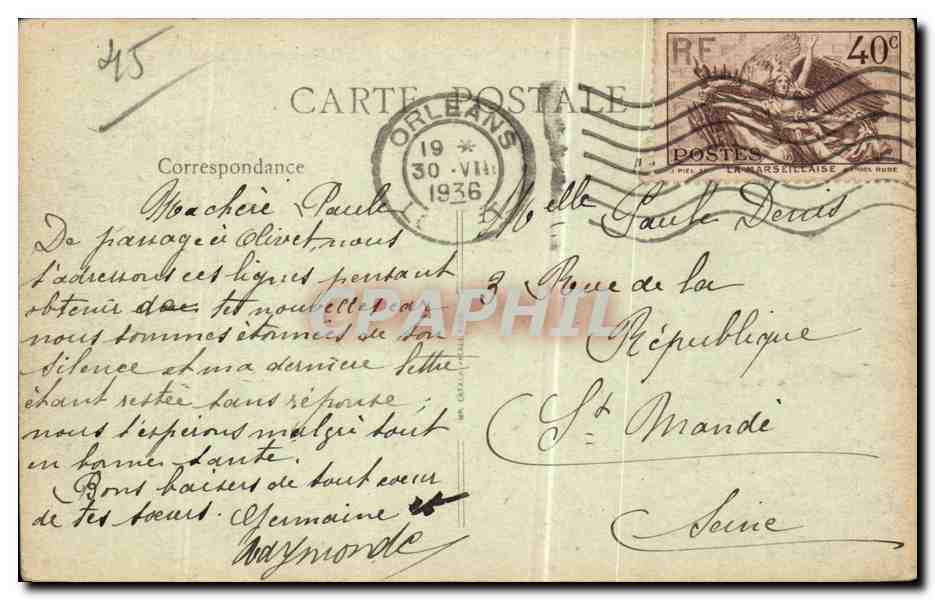 45
CARTE POSTALE
RF 40c
POSTES
LA MARSEILLAISE
ORLEANS
19 *
30 -VIII
1936
Correspondance
Ma chère Paule
De passage à Olivet, nous
t'adressons ces lignes pensant
obtenir de tes nouvelles car
nous sommes étonnées de ton
silence et ma dernière lettre
étant restée sans réponse,
nous t'espérons malgré tout
en bonne santé.
Bons baisers de tout cœur
de tes sœurs. Germaine et
Raymonde
Melle Paule Denis
3 Rue de la
République
St Mandé
Seine
CPAPHIL